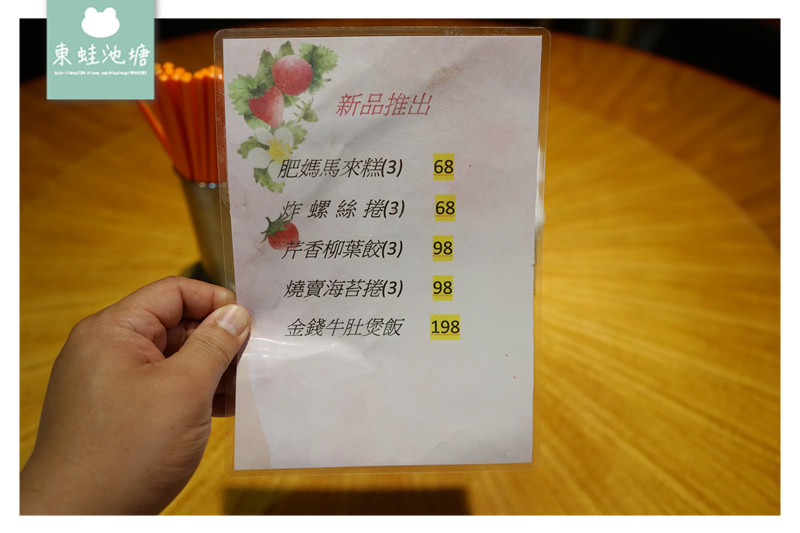 東蛙池塘
新品推出
肥媽馬來糕(3) 68
炸螺絲捲(3) 68
芹香柳葉餃(3) 98
燒賣海苔捲(3) 98
金錢牛肚煲飯 198